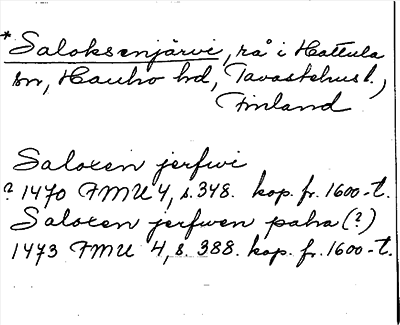 *Saloksenjärvi, rå i Hattula
sn, Hauho hd, Tavastehus l.,
Finland
Saloxen jerfwi
? 1470 FMU 4, s. 348. kop. fr. 1600-t.
Saloxen jerfwen paha (?)
1473 FMU 4, s. 388. kop. fr. 1600-t.